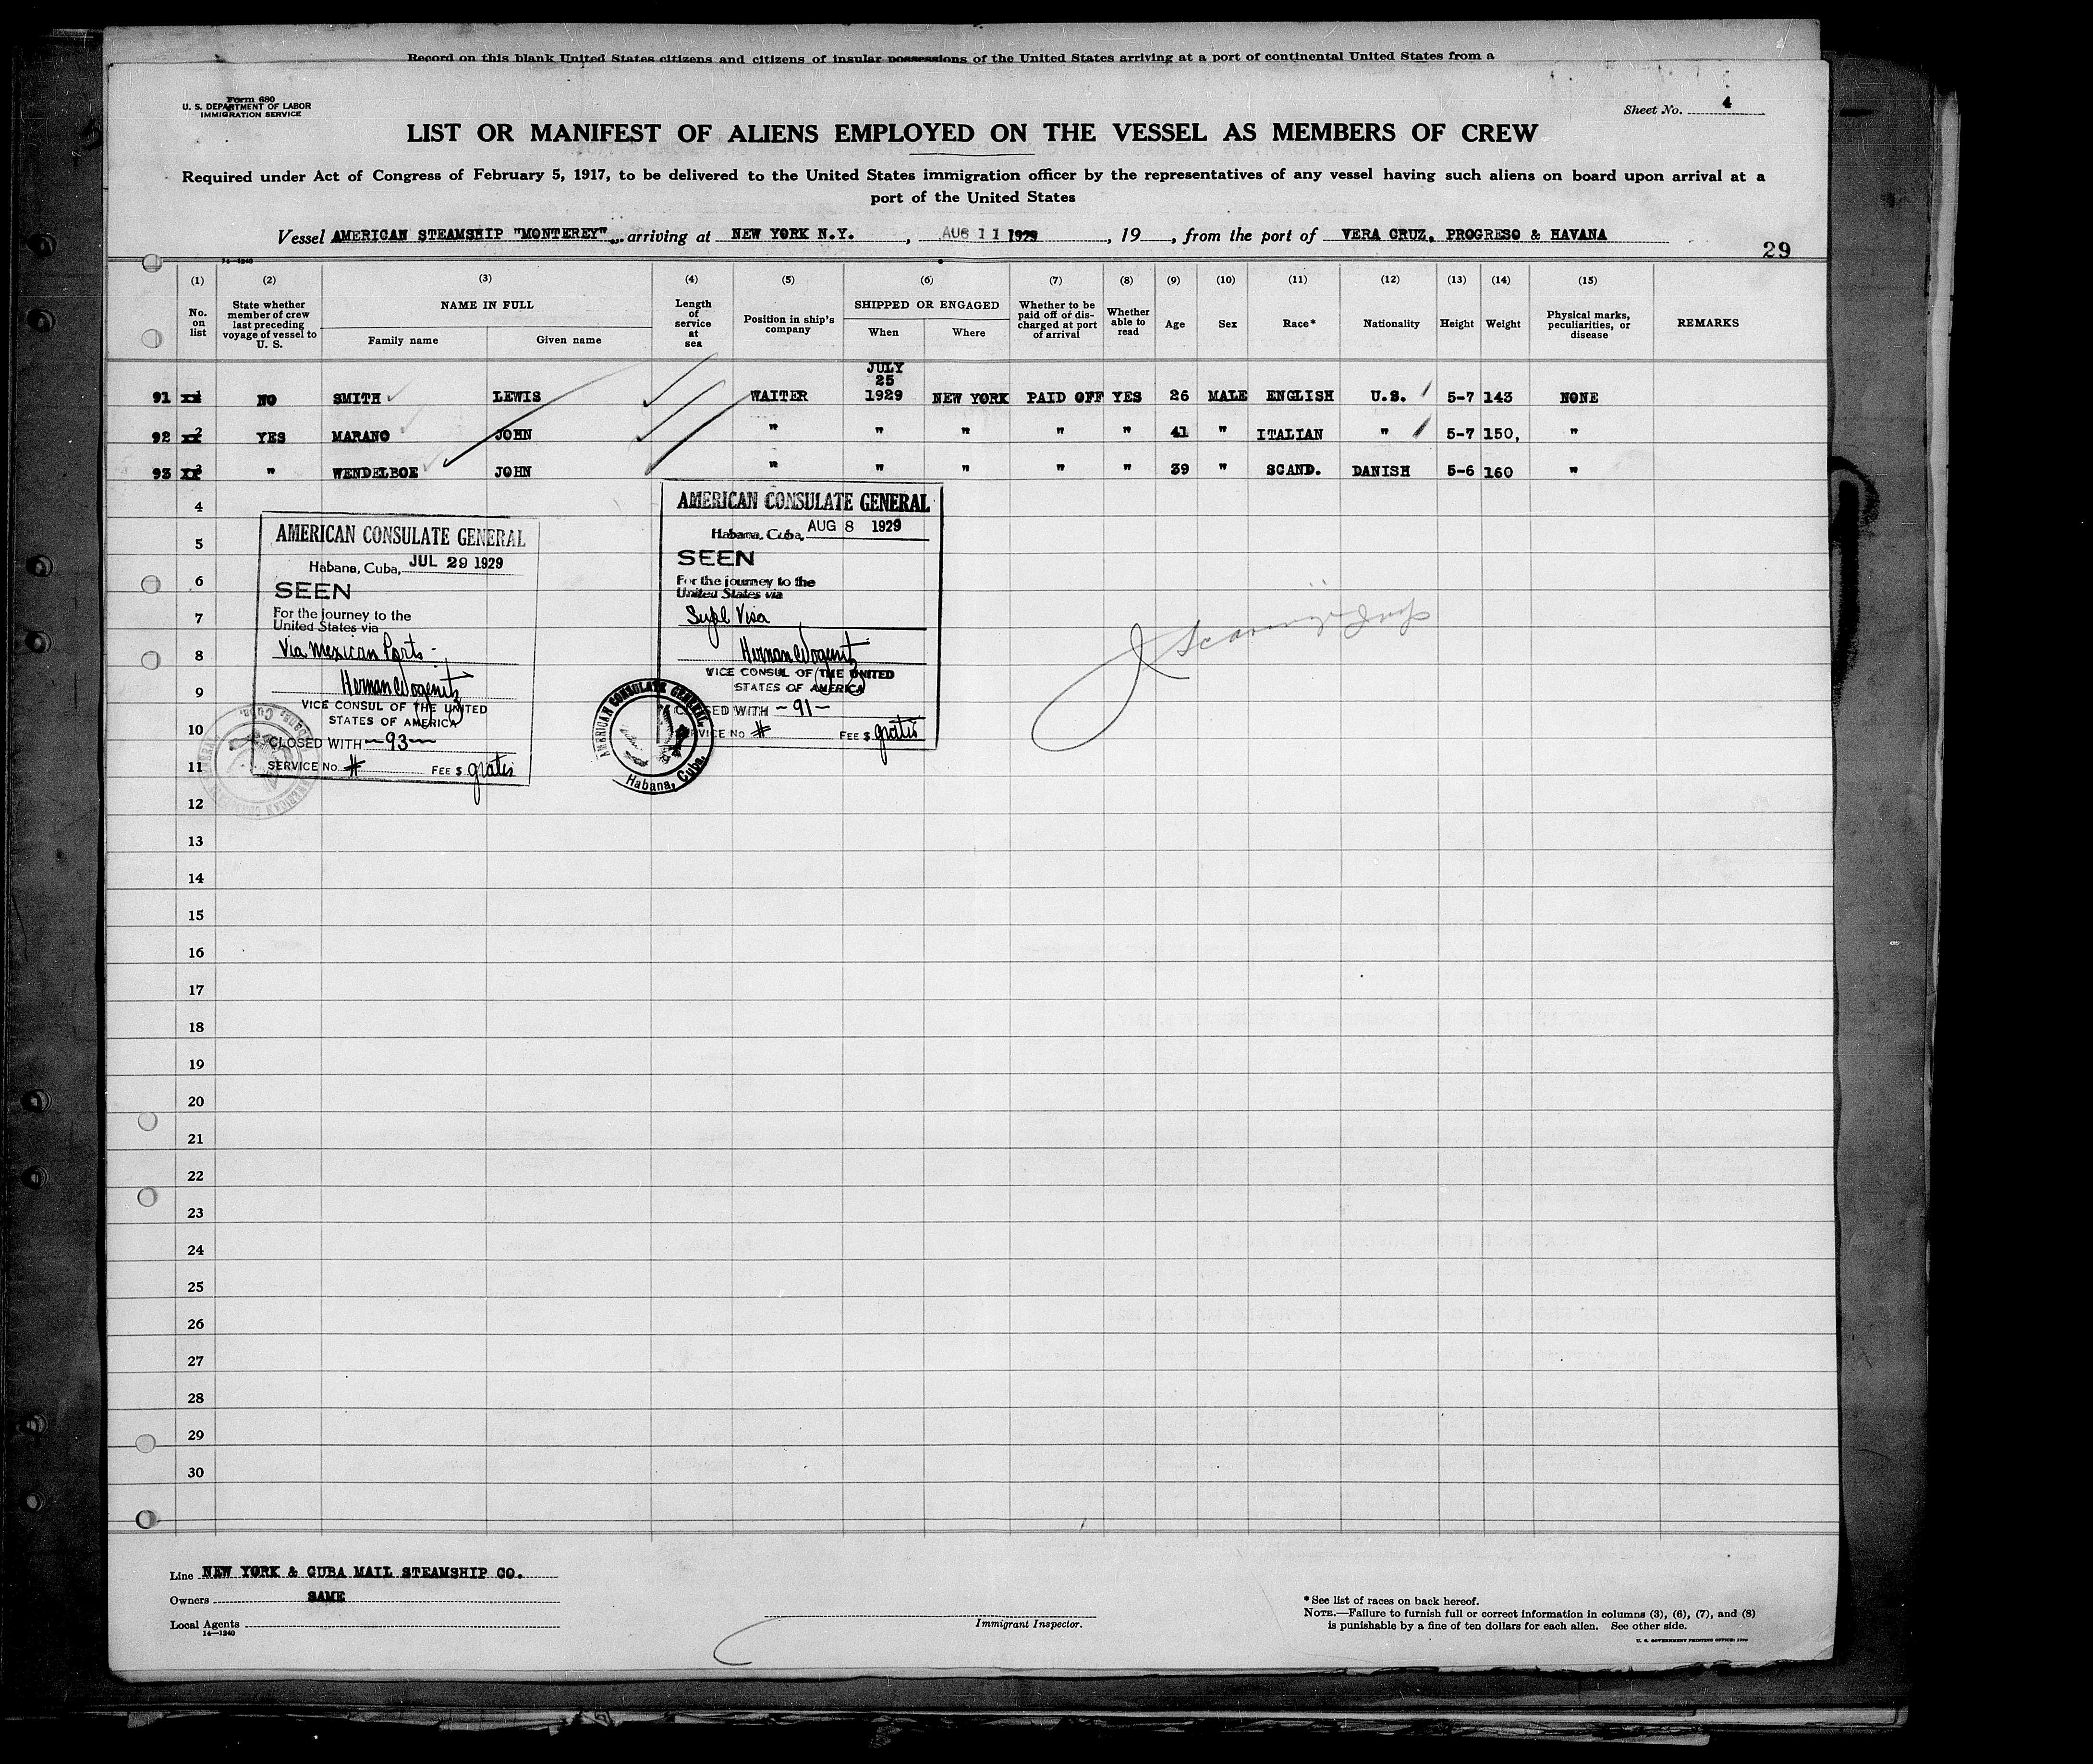 Record on this blank United States citizens and citizens of insular possessions of the United States arriving at a port of continental United States from a
Form 680
U. S. DEPARTMENT OF LABOR
IMMIGRATION SERVICE
Sheet No. 4
LIST OR MANIFEST OF ALIENS EMPLOYED ON THE VESSEL AS MEMBERS OF CREW
Required under Act of Congress of February 5, 1917, to be delivered to the United States immigration officer by the representatives of any vessel having such aliens on board upon arrival at a
port of the United States
Vessel AMERICAN STEAMSHIP "MONTEREY", arriving at NEW YORK N.Y., AUG 11 1929, 19, from the port of VERA CRUZ, PROGRESO & HAVANA
29
14-1240
(1) (2) (3) (4) (5) (6) (7) (8) (9) (10) (11) (12) (13) (14) (15)
No. on list
State whether member of crew last preceding voyage of vessel to U. S.
NAME IN FULL
Family name
Given name
Length of service at sea
Position in ship's company
SHIPPED OR ENGAGED
When
Where
Whether to be paid off or discharged at port of arrival
Whether able to read
Age
Sex
Race*
Nationality
Height
Weight
Physical marks, peculiarities, or disease
REMARKS
91 1 NO SMITH LEWIS WAITER JULY 25 1929 NEW YORK PAID OFF YES 26 MALE ENGLISH U.S. 5-7 143 NONE
92 2 YES MARANO JOHN " " " " " 41 " ITALIAN " 5-7 150, "
93 3 " WENDELBOE JOHN " " " " " 39 " SCAND. DANISH 5-6 160 "
AMERICAN CONSULATE GENERAL
Habana, Cuba, JUL 29 1929
SEEN
For the journey to the
United States via
Via Mexican Ports -
VICE CONSUL OF THE UNITED
STATES OF AMERICA
CLOSED WITH -93-
SERVICE No. # FEE $ gratis
AMERICAN CONSULATE GENERAL
Habana, Cuba, AUG 8 1929
SEEN
For the journey to the
United States via
Supl Visa
VICE CONSUL OF THE UNITED
STATES OF AMERICA
CLOSED WITH -91-
SERVICE No # FEE $ gratis
AMERICAN CONSULATE GENERAL,
Habana, Cuba.
4
5
6
7
8
9
10
11
12
13
14
15
16
17
18
19
20
21
22
23
24
25
26
27
28
29
30
Line NEW YORK & CUBA MAIL STEAMSHIP CO.
Owners SAME
Local Agents
14-1240
Immigrant Inspector.
* See list of races on back hereof.
NOTE.—Failure to furnish full or correct information in columns (3), (6), (7), and (8)
is punishable by a fine of ten dollars for each alien. See other side.